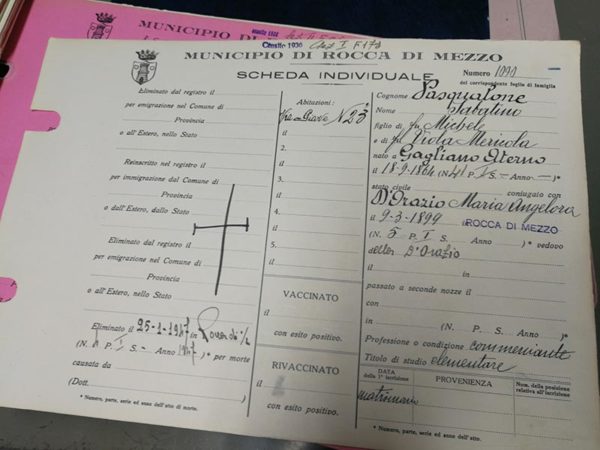 Censito 1936
MUNICIPIO DI ROCCA DI MEZZO
SCHEDA INDIVIDUALE
Numero 1090
del corrispondente foglio di famiglia
Eliminato dal registro il
per emigrazione nel Comune di
Provincia
o all'Estero, nello Stato
Reinscritto nel registro il
per immigrazione dal Comune di
Provincia
o dall'Estero, dallo Stato
Eliminato dal registro il
per emigrazione nel Comune di
Provincia
o all'Estero, nello Stato
Eliminato il 25-1-1947 in
(N. P. I S. - Anno 1947)* per morte
causata da
(Dott.
* Numero, parte, serie ed anno dell'atto di morte.
Abitazioni:
1. Via Piave N. 23
il
2.
il
3.
il
4.
il
5.
il
VACCINATO
il
con esito positivo.
RIVACCINATO
il
con esito positivo.
Cognome Pasqualone
Nome Sabatino
figlio di fu Michele
e di fu Viola Merinola
nato a Gagliano Aterno
il 18-9-1864 (N. 41 P. I S. - Anno - )*
stato civile coniugato con
D'Orazio Maria Angelora
il 9-3-1899 in ROCCA DI MEZZO
(N. 5 P. I S. Anno )* vedovo
della D'Orazio
il in
passato a seconde nozze il
con
il in
Professione o condizione commerciante
Titolo di studio elementare
DATA della 1ª iscrizione
PROVENIENZA
Num. della posizione relativa all'iscrizione
matrimonio
* Numero, parte, serie ed anno dell'atto.